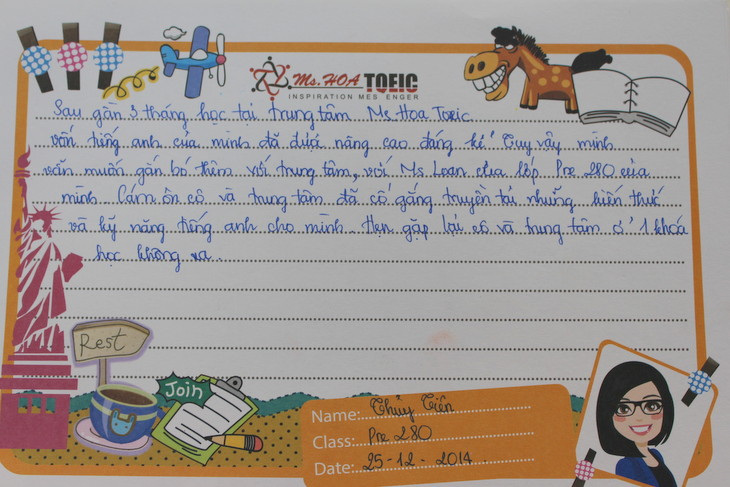 Ms. HOA TOEIC
INSPIRATION MES ENGER
Sau gần 3 tháng học tại trung tâm Ms Hoa Toeic
vốn tiếng anh của mình đã được nâng cao đáng kể. Tuy vậy mình
vẫn muốn gắn bó thêm với trung tâm, với Ms Loan của lớp Pre 280 của
mình. Cám ơn cô và trung tâm đã cố gắng truyền tải những kiến thức
và kỹ năng tiếng anh cho mình. Hẹn gặp lại cô và trung tâm ở 1 khoá
học không xa.
Rest
Join
Name: Thủy Tiên
Class: Pre 280
Date: 25-12-2014